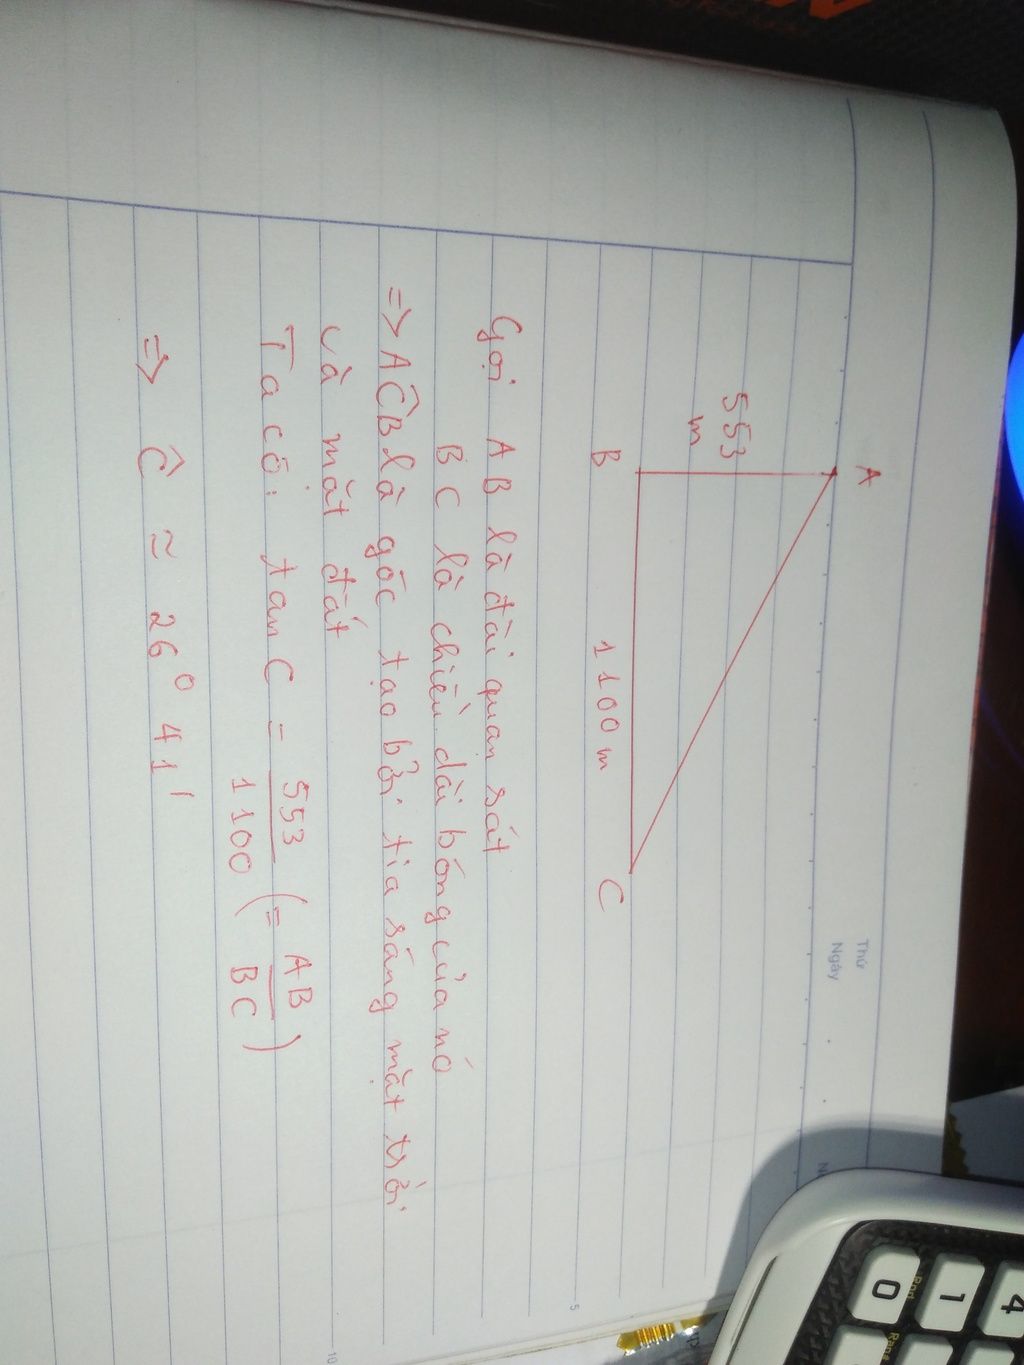 Thứ
Ngày
A
553
m
B
1100 m
C
Gọi AB là đài quan sát
BC là chiều dài bóng của nó
=> AĈB là góc tạo bởi tia sáng mặt trời
và mặt đất
Ta có: tan C = 553/1100 (= AB/BC)
=> Ĉ ≈ 26° 41'
5
10
4
1
0
Rnd
Ran#